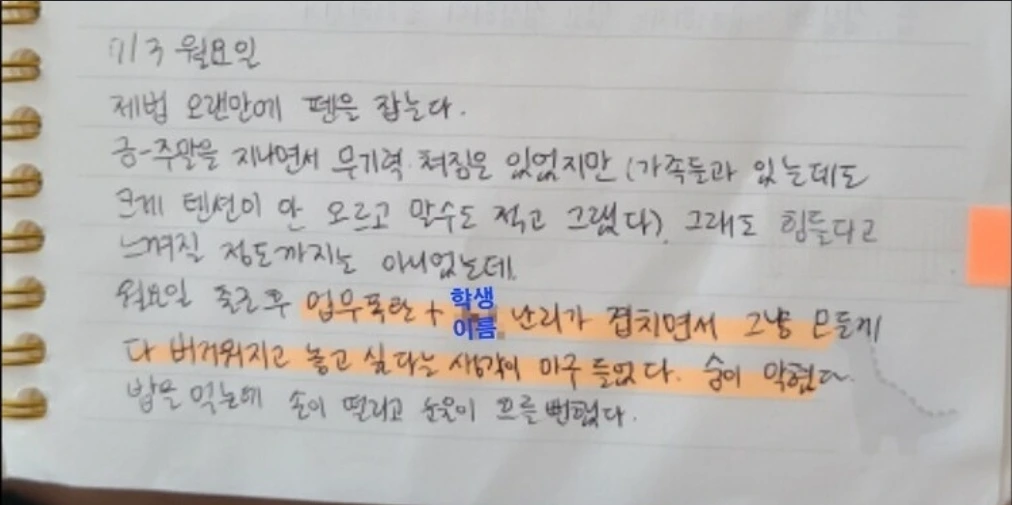 7/3 월요일
제법 오랜만에 펜을 잡는다.
금-주말을 지나면서 무기력 쳐짐은 있었지만 (가족들과 있는데도
크게 텐션이 안 오르고 말수도 적고 그랬다), 그래도 힘들다고
느껴질 정도까지는 아니었는데.
월요일 출근 후 업무폭탄 + 학생 이름 난리가 겹치면서 그냥 모든게
다 버거워지고 놓고 싶다는 생각이 마구 들었다. 숨이 막혔다.
밥을 먹는데 손이 떨리고 눈물이 흐를 뻔했다.